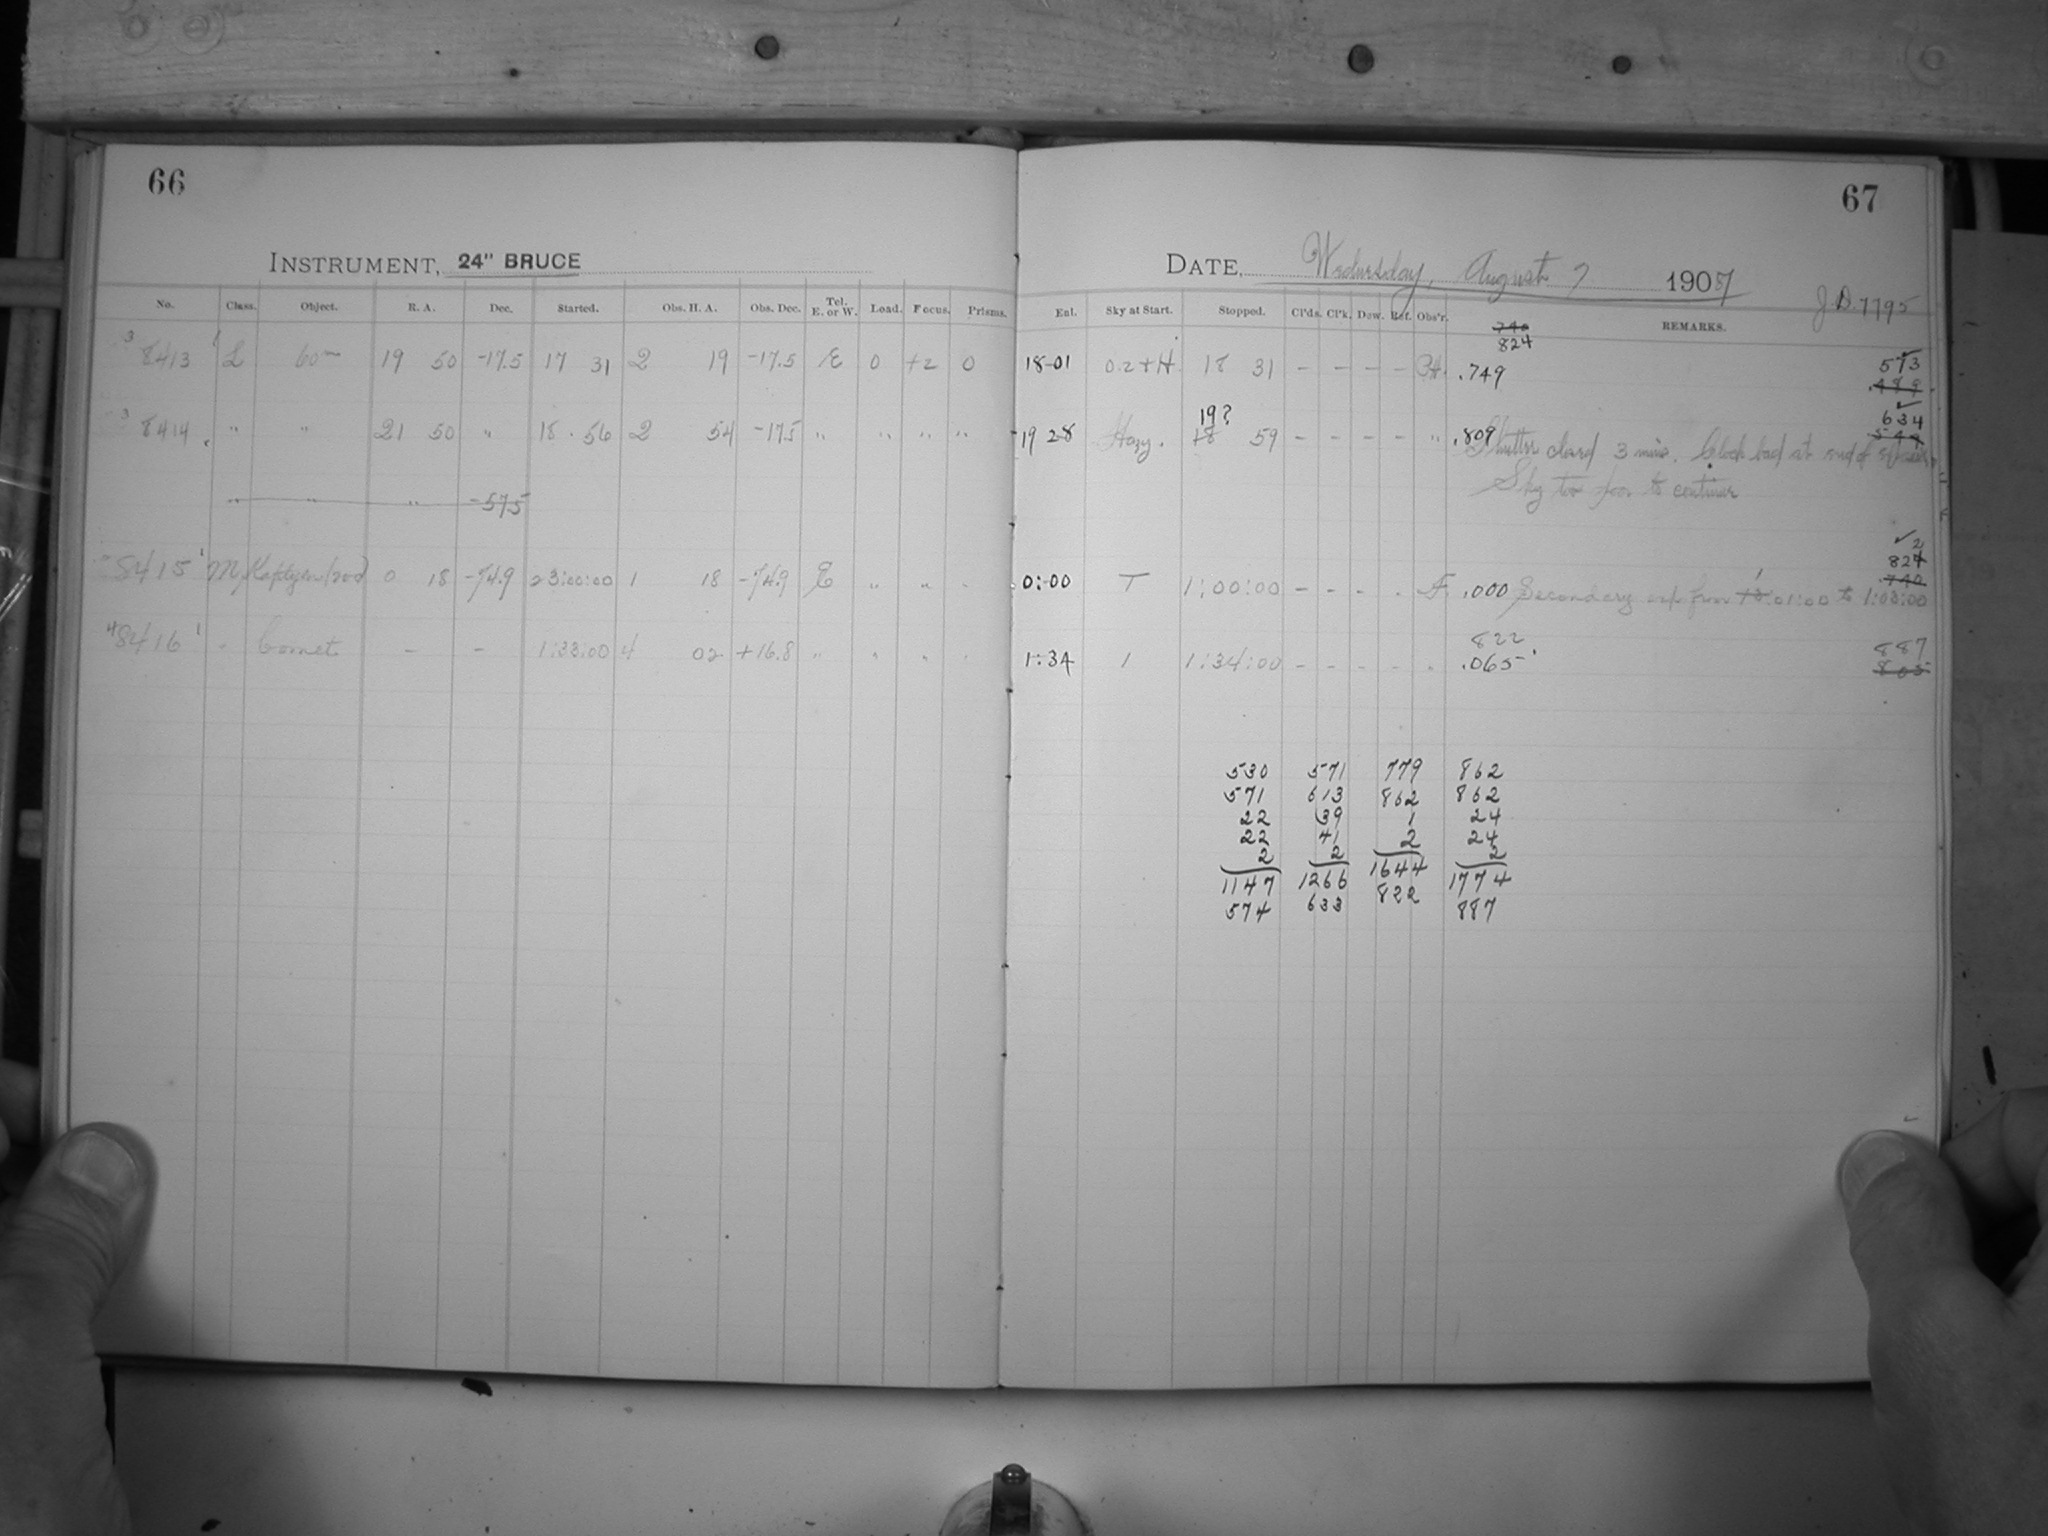 66
INSTRUMENT, 24" BRUCE
No. Class. Object. R. A. Dec. Started. Obs. H. A. Obs. Dec. Tel. E. or W. Load. Focus. Prisms.
3 8413 1 L 60m 19 50 -17.5 17 31 2 19 -17.5 E 0 +2 0
3 8414 " " 21 50 " 18.56 2 54 -17.5 " " " "
" " " -57.5
8415 1 M, 0 18 -74.9 23:00:00 1 18 -74.9 E " " "
4 8416 1 - Comet - - 1:33:00 4 02 +16.8 " " " "
67
DATE, Wednesday, August 7 1907
J.D. 7795
Ext. Sky at Start. Stopped. Cl'ds. Cl'k. Dew. Ref. Obs'r. REMARKS.
740
824
18-01 0.2+H 18 31 - - - - .749 573
489
19? 634
19 28 Hazy. 18 59 - - - - " .809 Shutter closed 3 mins. Clock bad at end of
Sky too poor to continue
2
824
740
0:00 T 1:00:00 - - - - F. .000 Secondary from 01:00 to 1:03:00
822 887
1:34 1 1:34:00 - - - - " .065 805
530 571 779 862
571 613 862 862
22 39 1 24
22 41 2 24
2 2 2
1147 1266 1644 1774
574 633 822 887